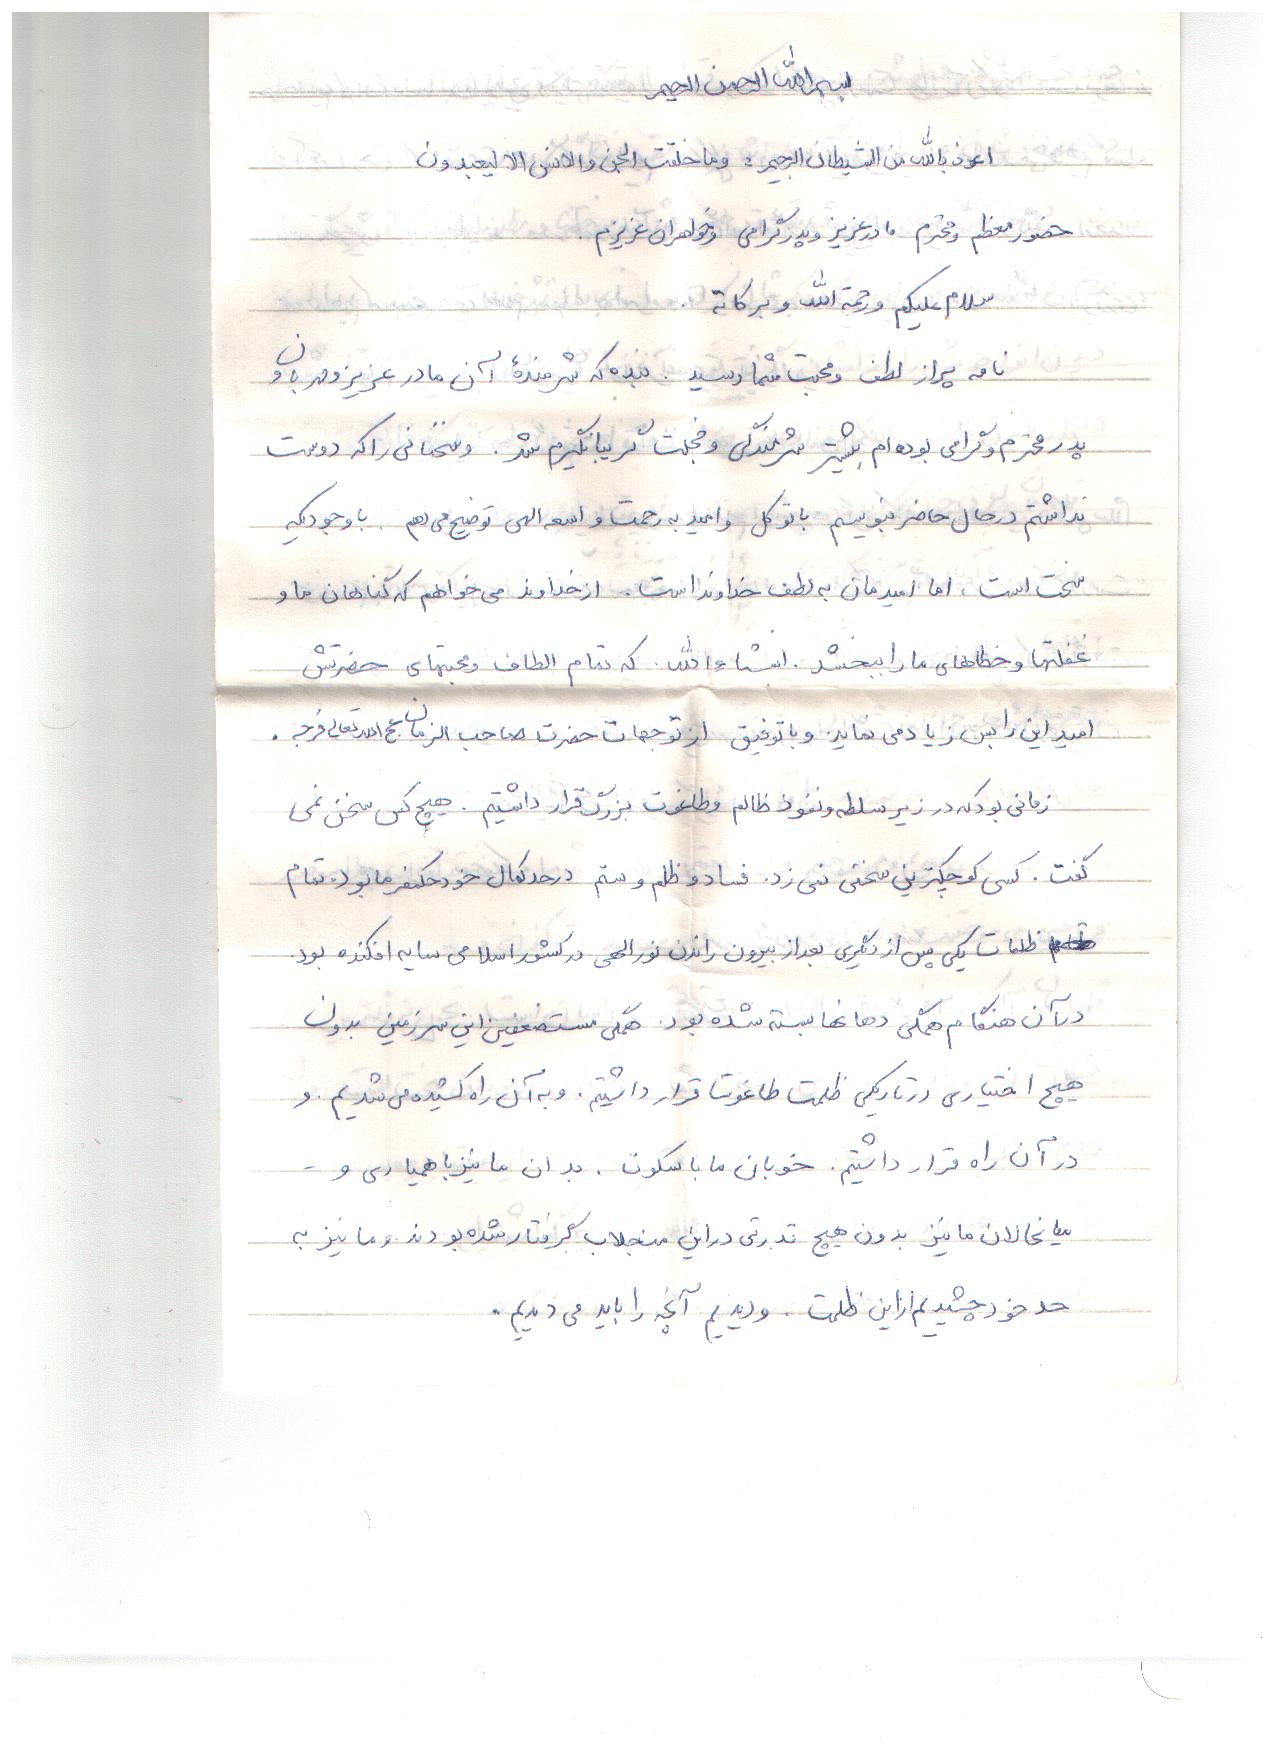 بسم الله الرحمن الرحیم
اعوذ بالله من الشیطان الرجیم : وما خلقت الجن والانس الا لیعبدون
حضور معظم و محترم مادر عزیز و پدر گرامی و خواهران عزیزم .
سلام علیکم و رحمة الله و برکاته .
نامه پر از لطف و محبت شما رسید . بنده که شرمندهٔ آن مادر عزیز و مهربان و
پدر محترم و گرامی بوده‌ام بیشتر شرمندگی و خجلت گریبانگیرم شد . و سخنانی را که دوست
نداشتم در حال حاضر بنویسم با توکل و امید به رحمت واسعه الهی توضیح می دهم . با وجودیکه
سخت است . اما امیدمان به لطف خداوند است . از خداوند می خواهم که گناهان ما و
غفلتها و خطاهای ما را ببخشد . انشاءالله . که تمام الطاف و محبتهای حضرتش
امید این را بس زیاد می نماید و با توفیق از توجهات حضرت صاحب الزمان عج الله تعالی فرجه .
زمانی بود که در زیر سلطه و نفوذ ظالم و طاغوت بزرگ قرار داشتیم . هیچ کس سخن نمی
گفت . کسی کوچکترین سخنی نمی زد . فساد و ظلم و ستم در حد کمال خود حکمفرما بود . تمام
ظلمات یکی پس از دیگری بعد از بیرون راندن نور الهی در کشور اسلامی سایه افکنده بود .
در آن هنگام همگی دهانها بسته شده بود . همگی مستضعفین این سرزمین بدون
هیچ اختیاری در تاریکی ظلمت طاغوت قرار داشتیم . و به آن راه کشیده می شدیم . و
در آن راه قرار داشتیم . خوبان ما با سکوت . بدان ما نیز با همیاری و -
میانحالان ما نیز بدون هیچ قدرتی در این منجلاب گرفتار شده بودند . و ما نیز به
حد خود چشیدیم از این ظلمت . و دیدیم آنچه را باید می دیدیم .